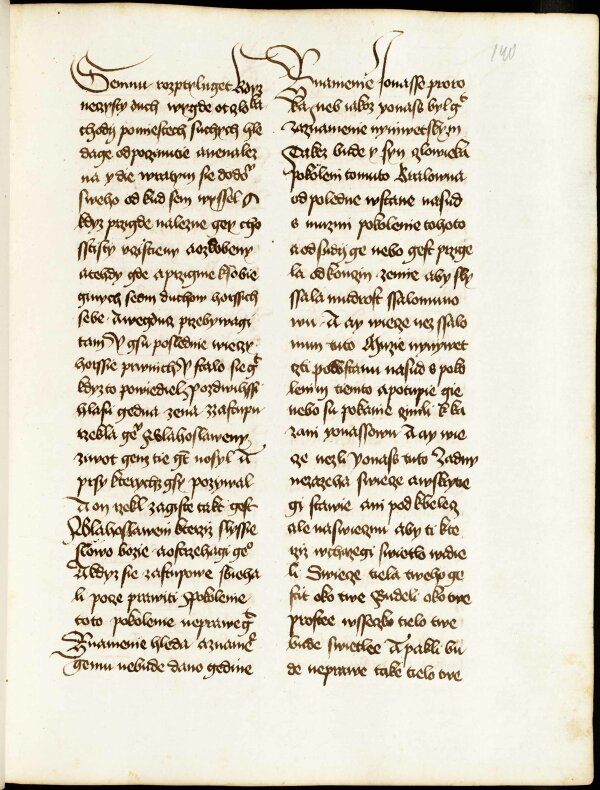 140
Semnu rozptyluget kdyz
neczysty duch wygde otczlowka
chody po miestech suchych hle
dage odpoczinutie a nenalez
na y die wratym sie do do°
sweho od kud sem wyssel A
kdyz przigde nalezne gey cho
sscisty uristieny a ozdobeny
a tehdy gde a przigme k sobie
ginych sedm duchow horssich
sebe A wegduc przebywagi
tam y gsu posledne wieczy
horssie prwnich y stalo sie gt
kdyz to powiediel y pozdwihssi
hlasu gedna zena z zastupu
rzekla ge° Blahoslaweny
ziwot genz tie gt nosyl A
prsy kterychz gsy pozywal
A on rzekl zagiste take gest
Blahoslaweni kterziz slyssie
slowo bozie a ostrzehagi ge°
A kdyz sie zastupowe sbieha
li pocze prawiti Pokolenie
toto pokolenie neprawe gt
Znamenie hleda a zname°
gemu nebude dano gedine
Znamenie Jonasse proro
ka neb iakoz yonas byl gt
za znamenie nyniwetskym
Takez bude y syn czlowieka
pokoleni tomuto Kralowna
od poledne wstane na sud
s muzmi pokolenie tohoto
a odsudy ge nebo gest przige
la od konczin zemie aby sly
ssala mudrost ssalomuno
wu A ay wiecze nez ssalo
mun tuto Muzie nynywet
szti powstanu na sud s poko
lenim tiemto a potupie gie
nebo su pokanie cinili k ka
zani yonassowu A ay wie
cze nezli yonas tuto Zadny
nezazeha swiecze a w skrytie
gi stawie ani pod kbelecz
ale na swieczni aby ti kte
rziz wchazegi swietlo widie
li Swiecze tiela tweho ge
st oko twe Budeli oko twe
prostee wsseczko tielo twe
bude swietlee A pakli bu
de neprawe take tielo twe